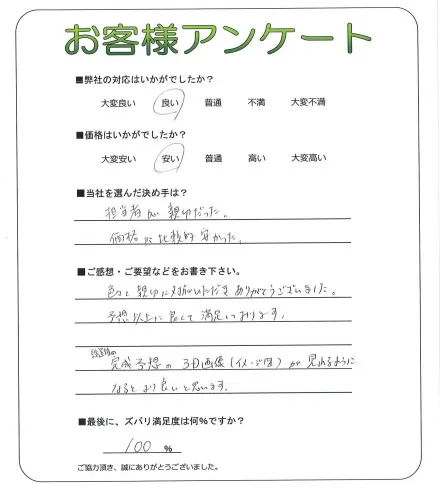 お客様アンケート
■弊社の対応はいかがでしたか？
大変良い 良い 普通 不満 大変不満
■価格はいかがでしたか？
大変安い 安い 普通 高い 大変高い
■当社を選んだ決め手は？
担当者が親切だった。
価格が比較的安かった。
■ご感想・ご要望などをお書き下さい。
色々と親切に対応いただきありがとうございました。
予想以上に良くて満足しております。
完成予想の3D画像(イメージ図)が見れるように
なるとより良いと思います。
■最後に、ズバリ満足度は何%ですか？
100 %
ご協力頂き、誠にありがとうございました。